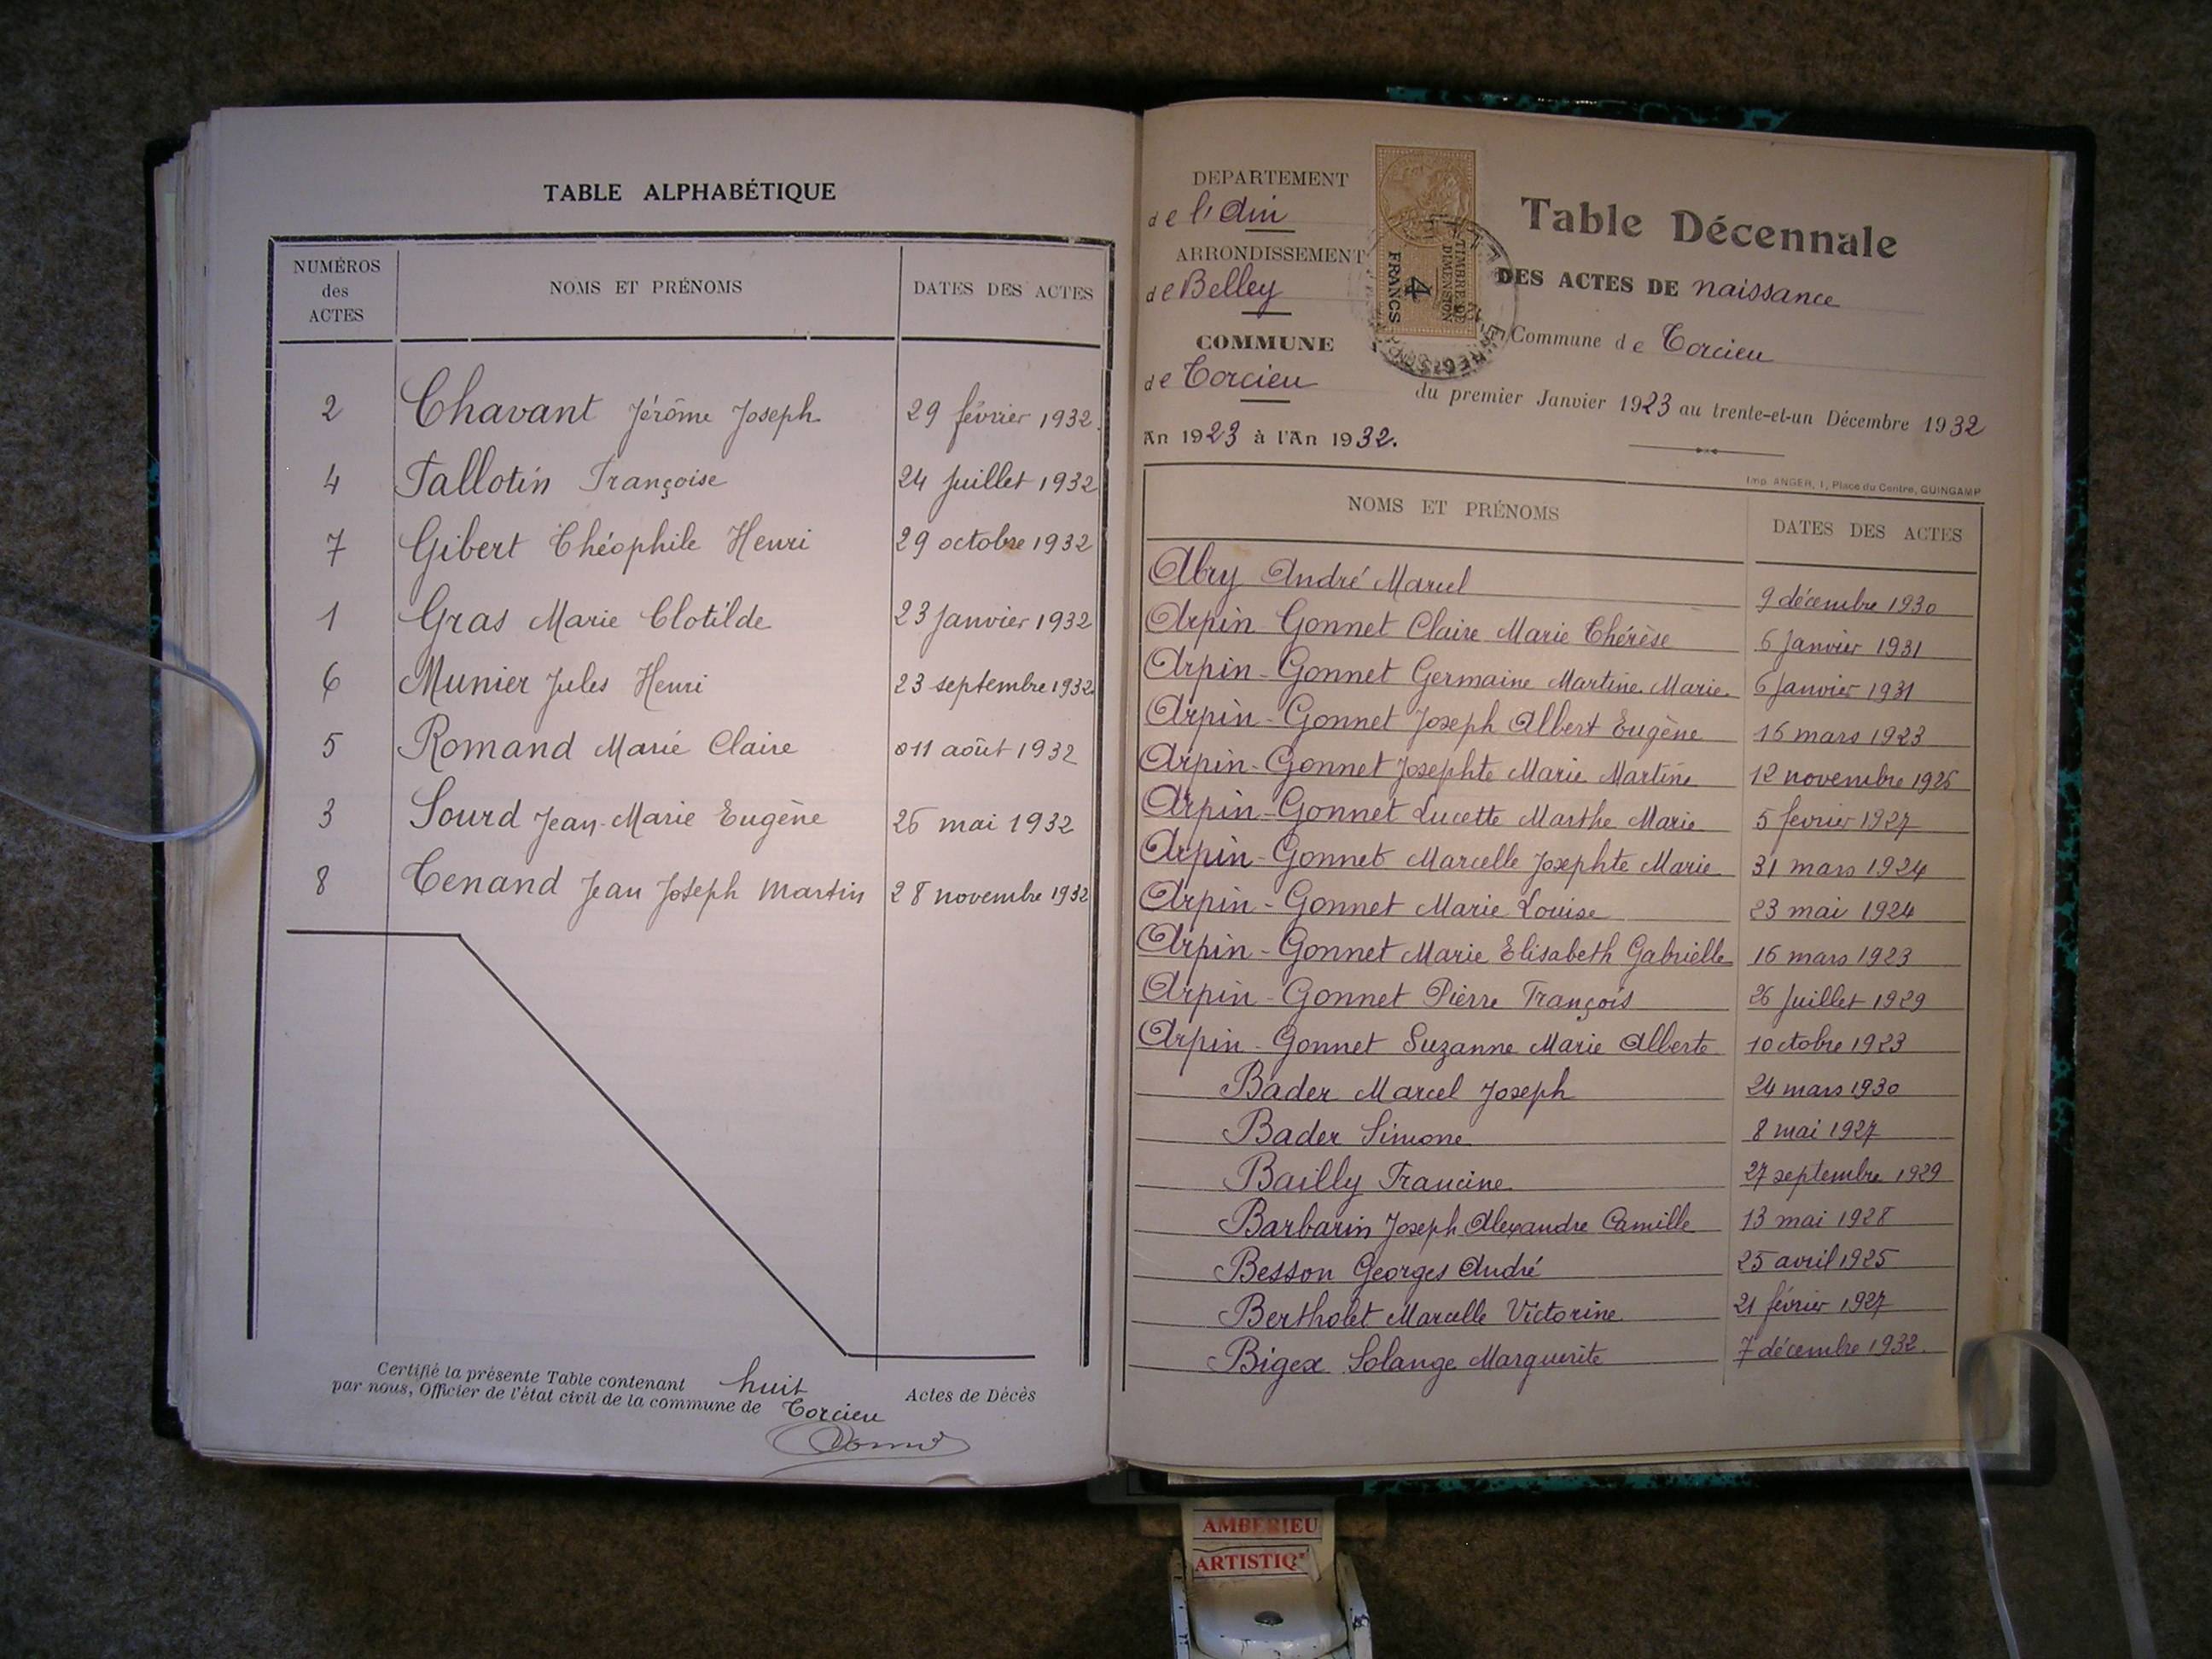 TABLE ALPHABÉTIQUE
NUMÉROS des ACTES NOMS ET PRÉNOMS DATES DES ACTES
2 Chavant Jérôme Joseph 29 février 1932.
4 Fallotin Françoise 24 Juillet 1932
7 Gibert Théophile Henri 29 octobre 1932
1 Gras Marie Clotilde 23 Janvier 1932
6 Munier Jules Henri 23 septembre 1932
5 Romand Marie Claire 11 août 1932
3 Sourd Jean-Marie Eugène 26 mai 1932
8 Tenand Jean Joseph Martin 28 novembre 1932
Certifié la présente Table contenant huit Actes de Décès
par nous, Officier de l'état civil de la commune de Torcieu
DEPARTEMENT
de l'Ain
ARRONDISSEMENT
de Belley
COMMUNE
de Torcieu
An 1923 à l'An 1932.
TIMBRE DE
DIMENSION
4
FRANCS
Table Décennale
DES ACTES DE naissance
Commune de Torcieu
du premier Janvier 1923 au trente-et-un Décembre 1932
Imp. ANGER, 1, Place du Centre, GUINGAMP
NOMS ET PRÉNOMS DATES DES ACTES
Abry André Marcel 9 décembre 1930
Arpin-Gonnet Claire Marie Thérèse 6 Janvier 1931
Arpin-Gonnet Germaine Martine Marie 6 Janvier 1931
Arpin-Gonnet Joseph Albert Eugène 16 mars 1923
Arpin-Gonnet Josephte Marie Martine 12 novembre 1925
Arpin-Gonnet Lucette Marthe Marie 5 février 1927
Arpin-Gonnet Marcelle Josephte Marie 31 mars 1924
Arpin-Gonnet Marie Louise 23 mai 1924
Arpin-Gonnet Marie Elisabeth Gabrielle 16 mars 1923
Arpin-Gonnet Pierre François 26 Juillet 1929
Arpin-Gonnet Suzanne Marie Alberte 1 octobre 1923
Bader Marcel Joseph 24 mars 1930
Bader Simone 8 mai 1927
Bailly Francine 27 septembre 1929
Barbarin Joseph Alexandre Camille 13 mai 1928
Besson Georges André 25 avril 1925
Bertholet Marcelle Victorine 21 février 1927
Bigex Solange Marguerite 7 décembre 1932.
AMBERIEU
ARTISTIQ